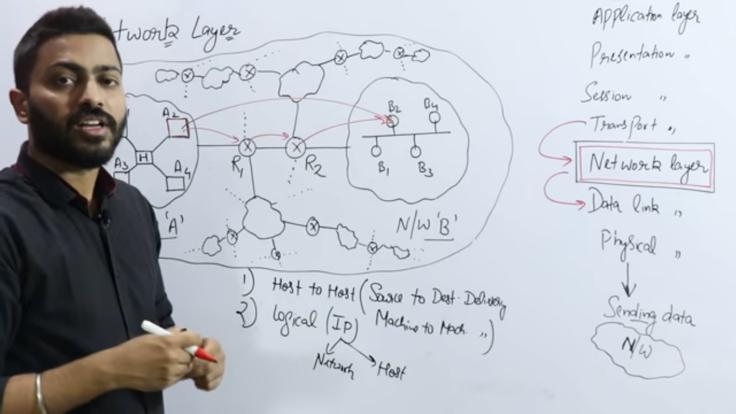 twork Layer
A2
A3
A4
H
'A'
R1
R2
B2
B4
B1
B3
N/W 'B'
1) Host to Host (Source to Dest. Delivery
Machine to Mach. ")
2) Logical (IP)
Network
Host
Application layer
Presentation "
Session "
Transport "
Network layer
Data link "
Physical "
Sending data
N/W